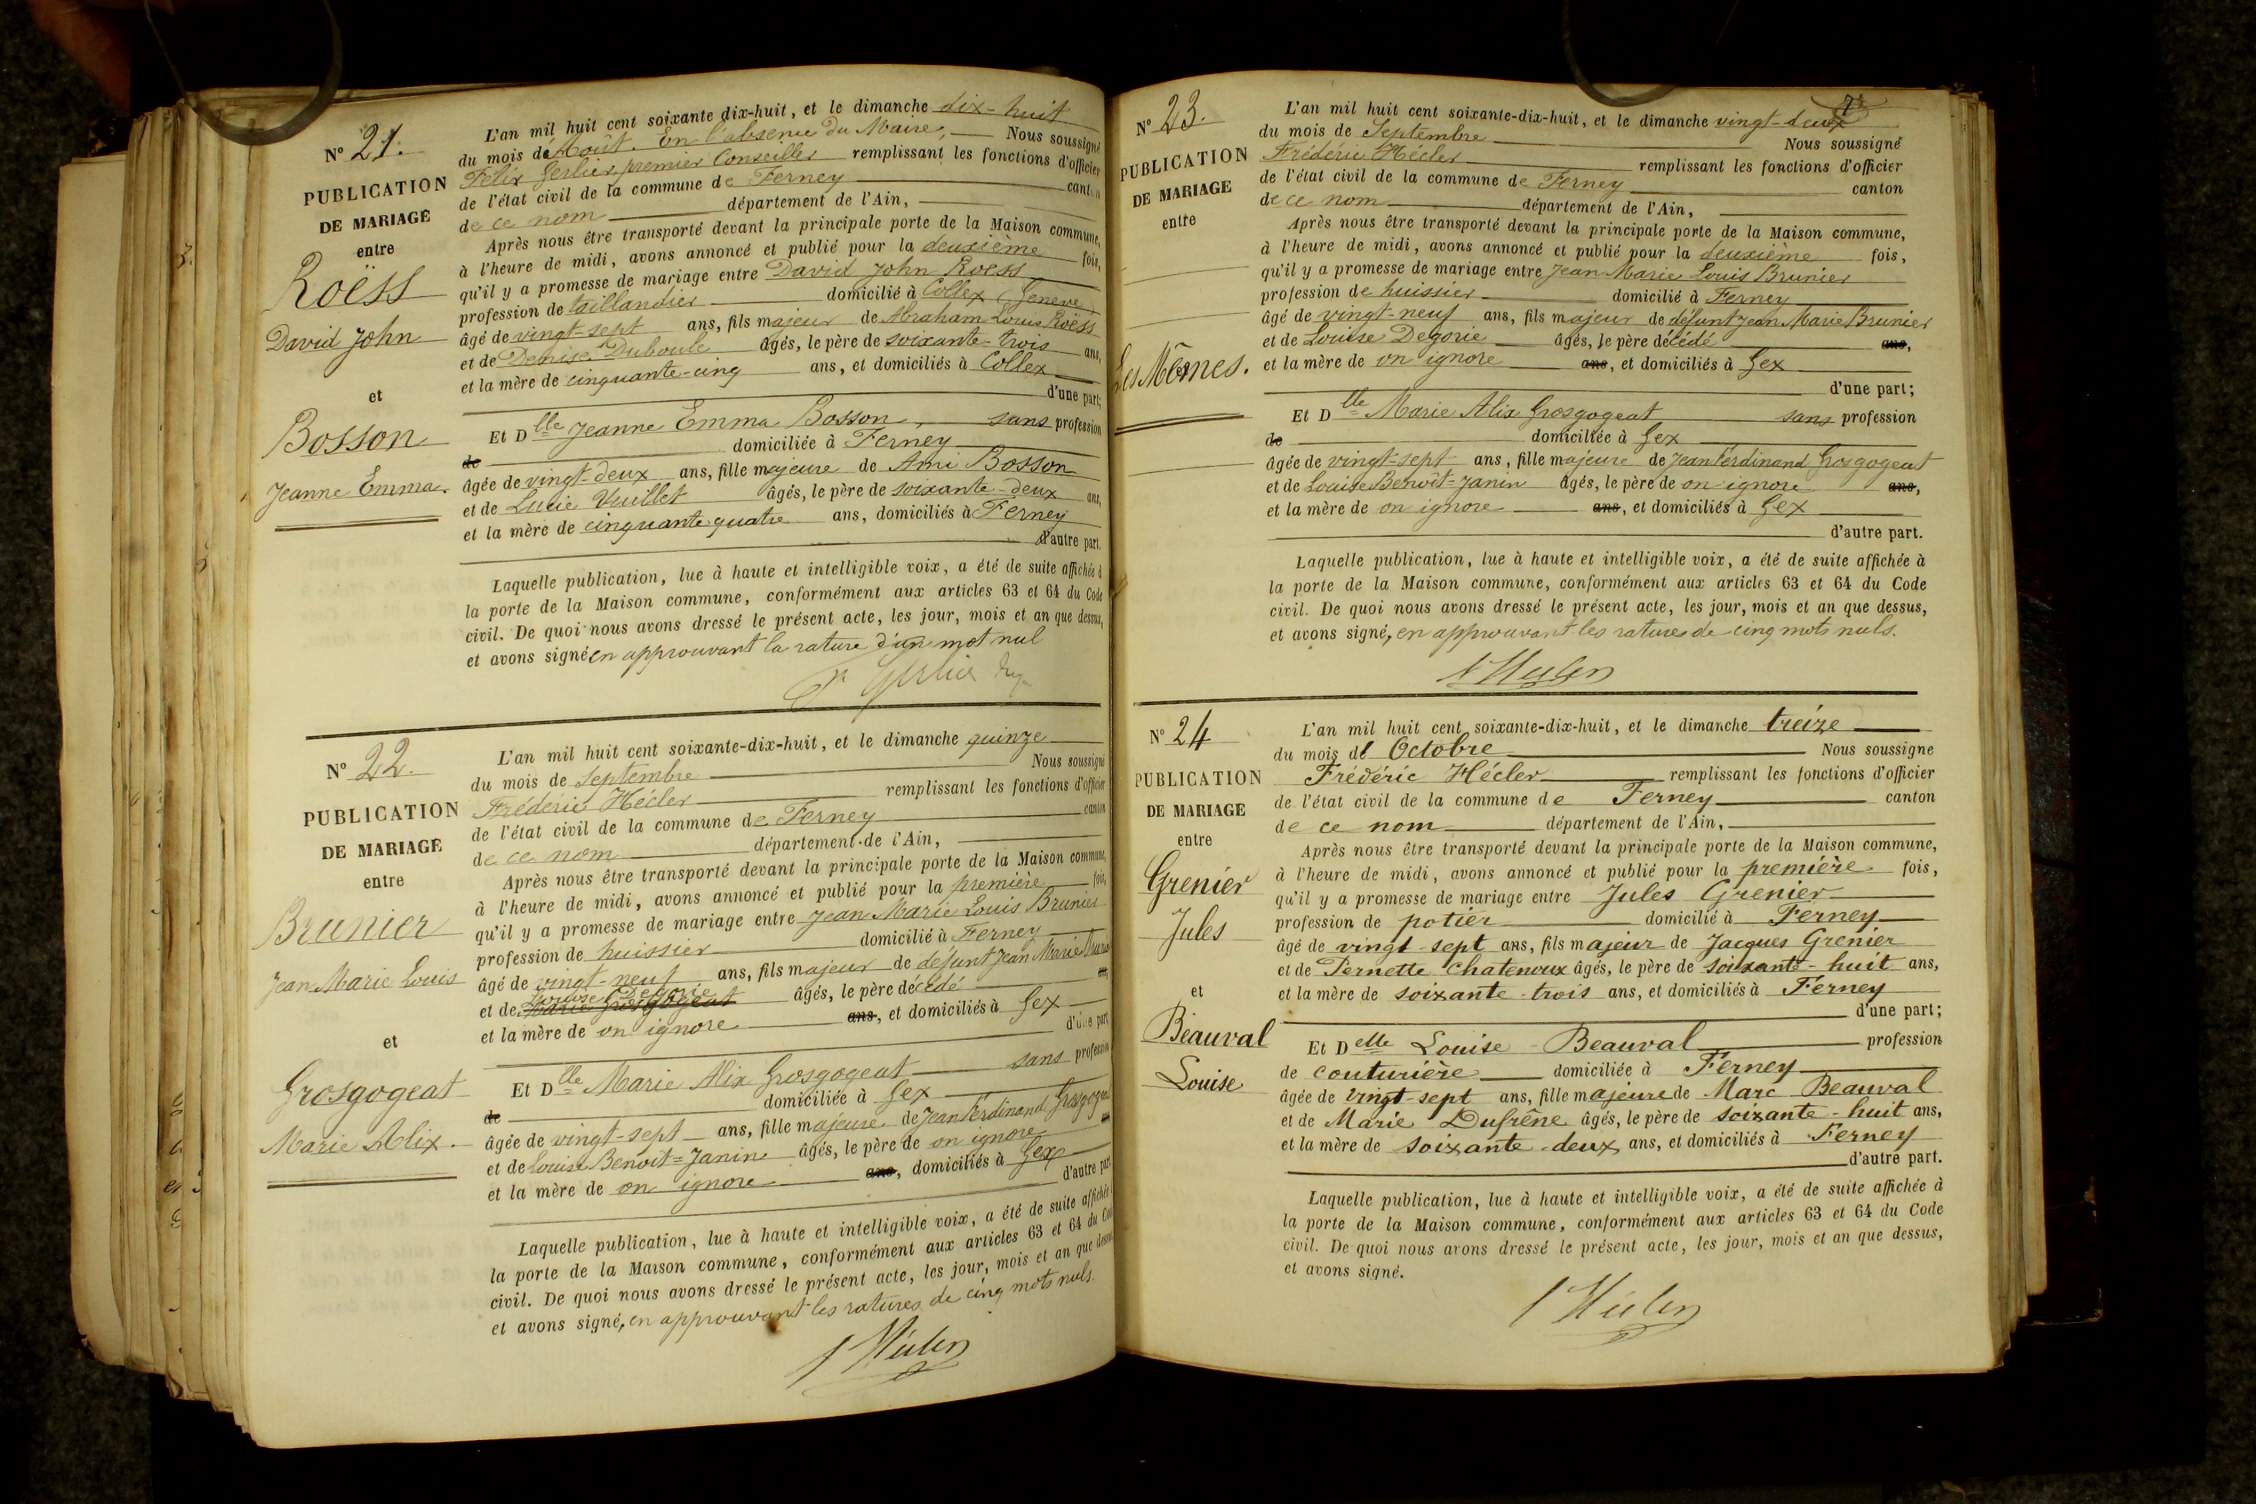 N° 21.
PUBLICATION
DE MARIAGE
entre
Roëss
David John
et
Bosson
Jeanne Emma.
L'an mil huit cent soixante dix-huit, et le dimanche dix-huit
du mois de Août. En l'absence du Maire, Nous soussigné
Félix Gerlier, premier Conseiller remplissant les fonctions d'officier
de l'état civil de la commune de Ferney canton
de ce nom département de l'Ain,
Après nous être transporté devant la principale porte de la Maison commune,
à l'heure de midi, avons annoncé et publié pour la deuxième fois,
qu'il y a promesse de mariage entre David John Roëss
profession de taillandier domicilié à Collex (Genève)
âgé de vingt-sept ans, fils majeur de Abraham Louis Roëss
et de Denise Duboule âgés, le père de soixante-trois ans,
et la mère de cinquante-cinq ans, et domiciliés à Collex
d'une part;
Et Dlle Jeanne Emma Bosson, sans profession
de domiciliée à Ferney
âgée de vingt-deux ans, fille majeure de Ami Bosson
et de Lucie Vuillet âgés, le père de soixante-deux ans,
et la mère de cinquante quatre ans, domiciliés à Ferney
d'autre part.
Laquelle publication, lue à haute et intelligible voix, a été de suite affichée à
la porte de la Maison commune, conformément aux articles 63 et 64 du Code
civil. De quoi nous avons dressé le présent acte, les jour, mois et an que dessus,
et avons signé en approuvant la rature d'un mot nul
Gerlier
N° 22.
PUBLICATION
DE MARIAGE
entre
Brunier
Jean Marie Louis
et
Grosgogeat
Marie Alix.
L'an mil huit cent soixante-dix-huit, et le dimanche quinze
du mois de Septembre Nous soussigné
Frédéric Hécler remplissant les fonctions d'officier
de l'état civil de la commune de Ferney canton
de ce nom département de l'Ain,
Après nous être transporté devant la principale porte de la Maison commune,
à l'heure de midi, avons annoncé et publié pour la première fois,
qu'il y a promesse de mariage entre Jean Marie Louis Brunier
profession de huissier domicilié à Ferney
âgé de vingt-neuf ans, fils majeur de défunt Jean Marie Brunier
et de Louise Degorie âgés, le père décédé ans,
et la mère de on ignore ans, et domiciliés à Gex
d'une part
Et Dlle Marie Alix Grosgogeat sans profession
de domiciliée à Gex
âgée de vingt-sept ans, fille majeure de Jean Ferdinand Grosgogeat
et de Louise Benoit=Janin âgés, le père de on ignore ans
et la mère de on ignore ans, domiciliés à Gex
d'autre part
Laquelle publication, lue à haute et intelligible voix, a été de suite affichée à
la porte de la Maison commune, conformément aux articles 63 et 64 du Code
civil. De quoi nous avons dressé le présent acte, les jour, mois et an que dessus
et avons signé, en approuvant les ratures de cinq mots nuls.
f Hécler
N° 23.
PUBLICATION
DE MARIAGE
entre
Les Mêmes.
L'an mil huit cent soixante-dix-huit, et le dimanche vingt-deux
du mois de Septembre Nous soussigné
Frédéric Hécler remplissant les fonctions d'officier
de l'état civil de la commune de Ferney canton
de ce nom département de l'Ain,
Après nous être transporté devant la principale porte de la Maison commune,
à l'heure de midi, avons annoncé et publié pour la deuxième fois,
qu'il y a promesse de mariage entre Jean Marie Louis Brunier
profession de huissier domicilié à Ferney
âgé de vingt-neuf ans, fils majeur de défunt Jean Marie Brunier
et de Louise Degorie âgés, le père décédé ans,
et la mère de on ignore ans, et domiciliés à Gex
d'une part;
Et Dlle Marie Alix Grosgogeat sans profession
de domiciliée à Gex
âgée de vingt-sept ans, fille majeure de Jean Ferdinand Grosgogeat
et de Louise Benoît=Janin âgés, le père de on ignore ans,
et la mère de on ignore ans, et domiciliés à Gex
d'autre part.
Laquelle publication, lue à haute et intelligible voix, a été de suite affichée à
la porte de la Maison commune, conformément aux articles 63 et 64 du Code
civil. De quoi nous avons dressé le présent acte, les jour, mois et an que dessus,
et avons signé, en approuvant les ratures de cinq mots nuls.
f Hécler
N° 24
PUBLICATION
DE MARIAGE
entre
Grenier
Jules
et
Beauval
Louise
L'an mil huit cent soixante-dix-huit, et le dimanche treize
du mois de Octobre Nous soussigné
Frédéric Hécler remplissant les fonctions d'officier
de l'état civil de la commune de Ferney canton
de ce nom département de l'Ain,
Après nous être transporté devant la principale porte de la Maison commune,
à l'heure de midi, avons annoncé et publié pour la première fois,
qu'il y a promesse de mariage entre Jules Grenier
profession de potier domicilié à Ferney
âgé de vingt-sept ans, fils majeur de Jacques Grenier
et de Pernette Chatenoux âgés, le père de soixante-huit ans,
et la mère de soixante-trois ans, et domiciliés à Ferney
d'une part;
Et Delle Louise Beauval profession
de couturière domiciliée à Ferney
âgée de vingt-sept ans, fille majeure de Marc Beauval
et de Marie Dufrêne âgés, le père de soixante-huit ans,
et la mère de soixante-deux ans, et domiciliés à Ferney
d'autre part.
Laquelle publication, lue à haute et intelligible voix, a été de suite affichée à
la porte de la Maison commune, conformément aux articles 63 et 64 du Code
civil. De quoi nous avons dressé le présent acte, les jour, mois et an que dessus,
et avons signé.
f Hécler